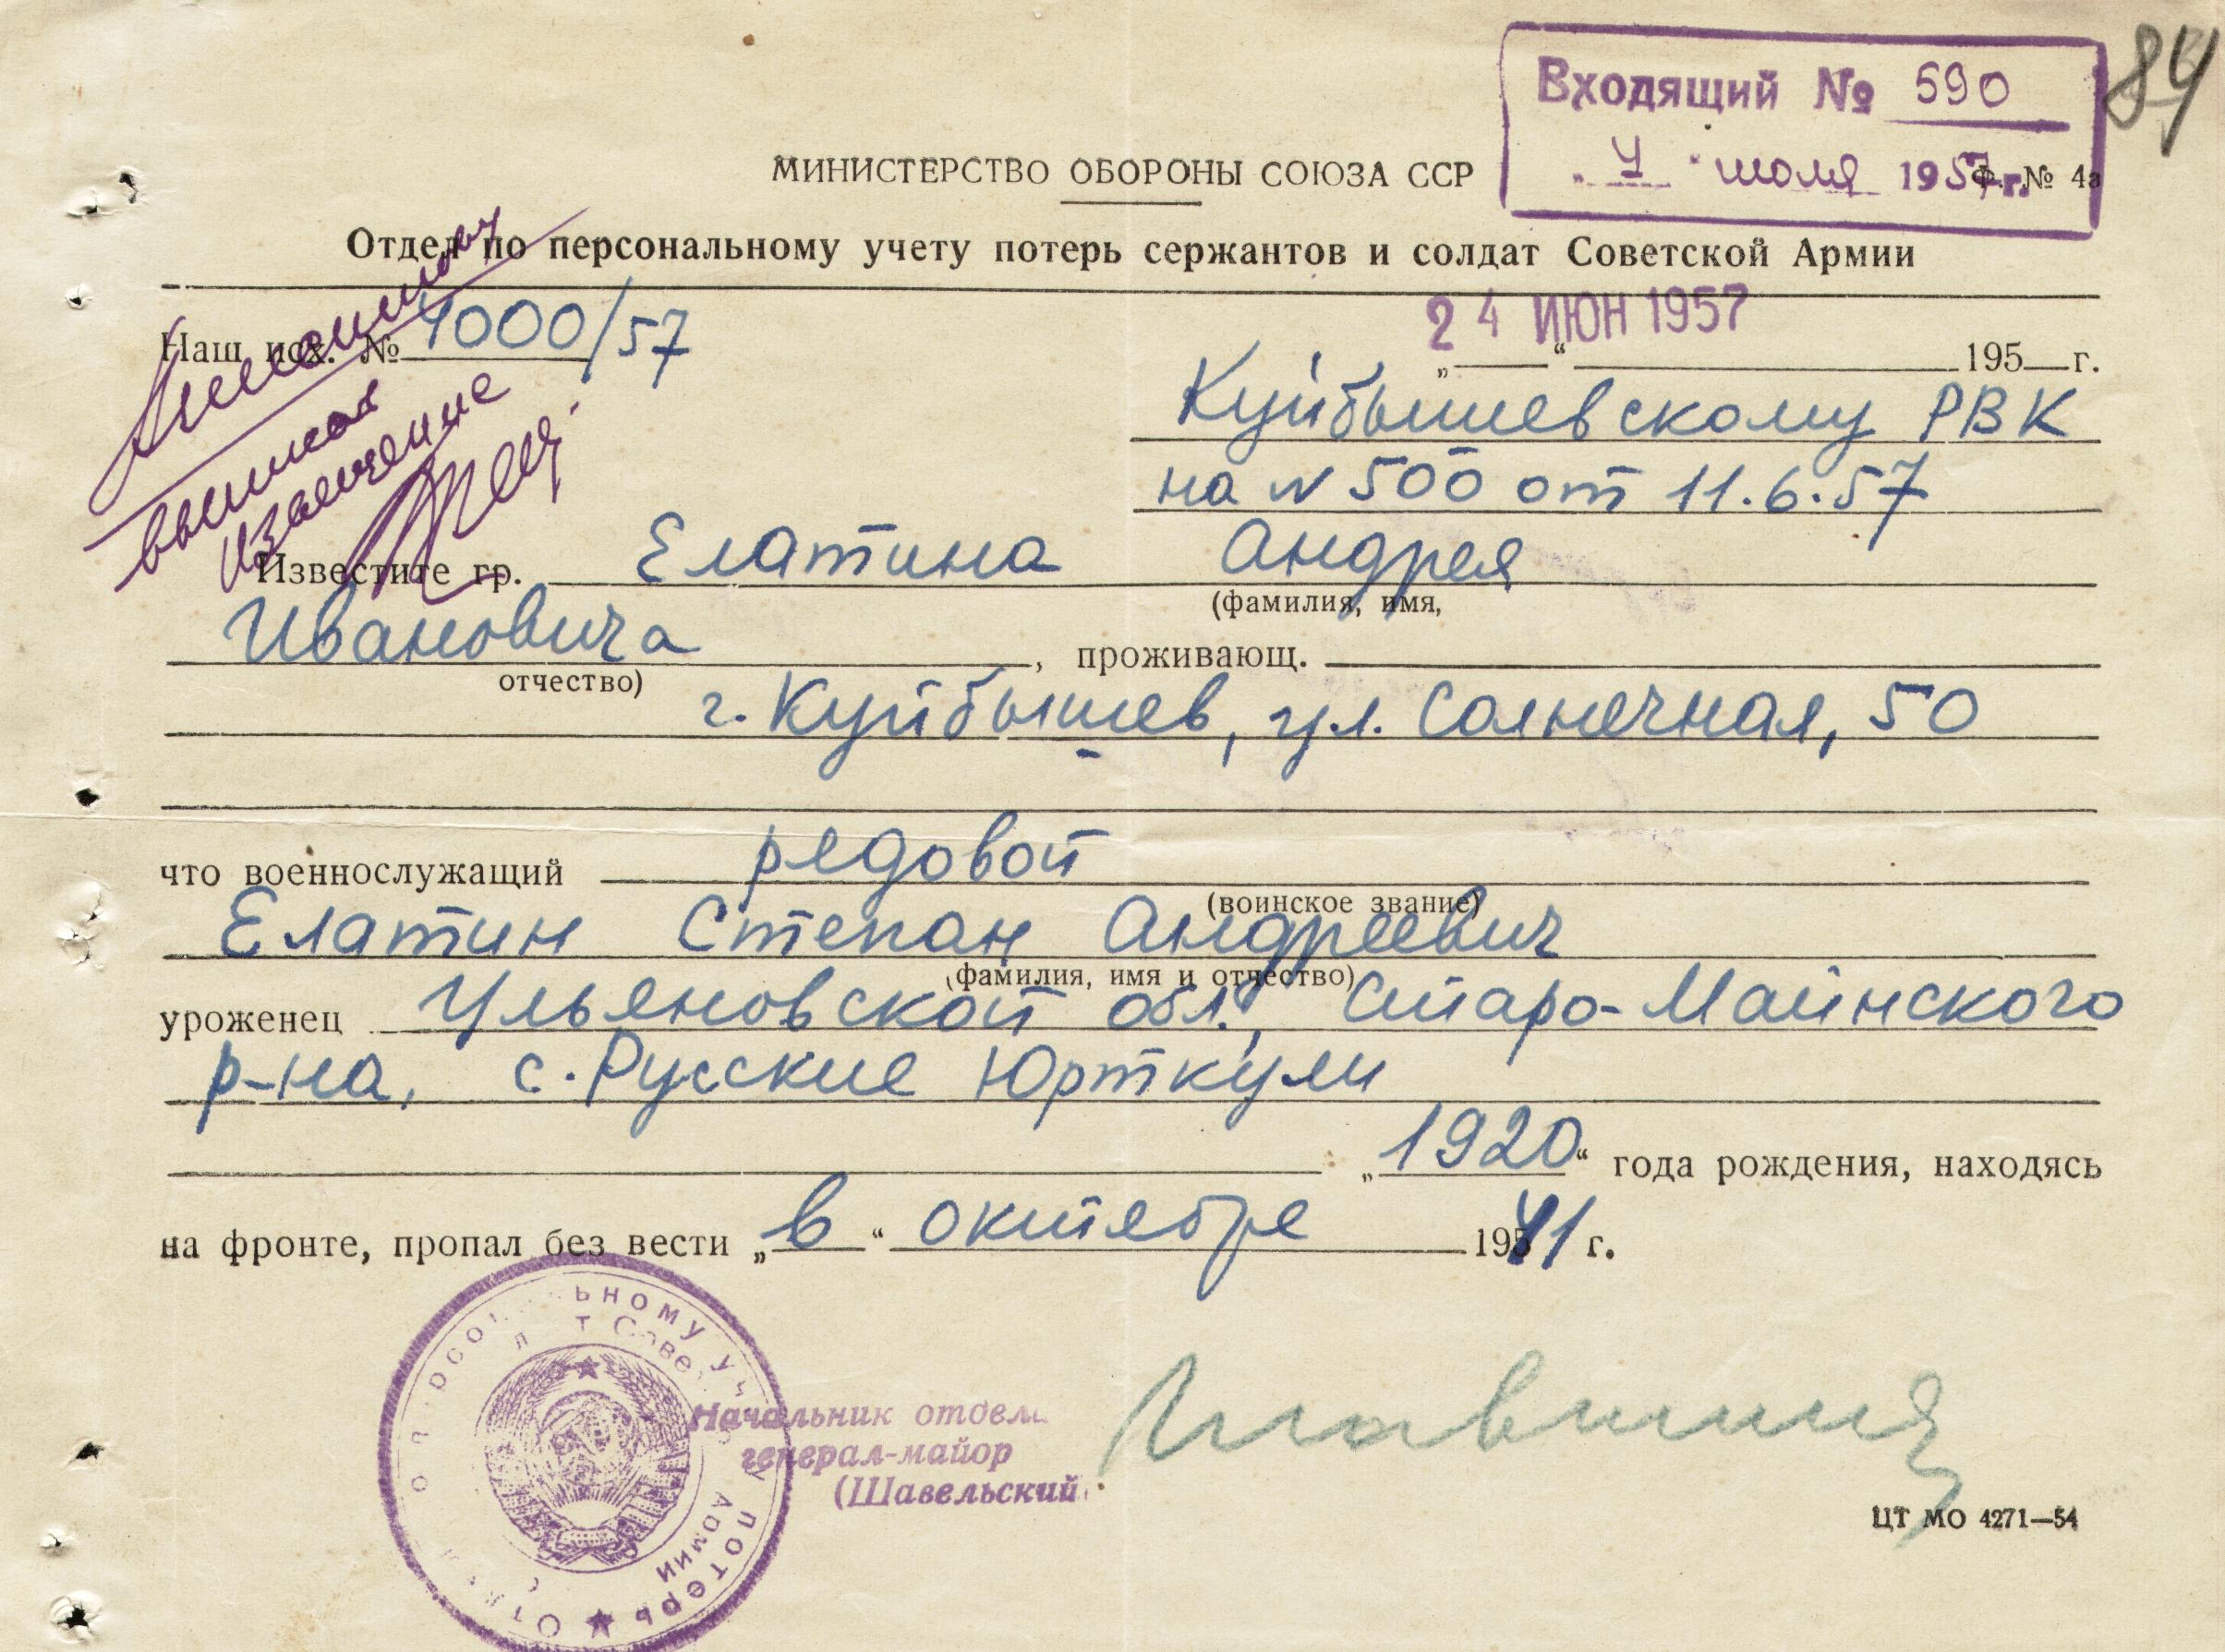 Входящий № 590
84
"4" июля 1957 г.
Ф. № 4а
МИНИСТЕРСТВО ОБОРОНЫ СОЮЗА ССР
Отдел по персональному учету потерь сержантов и солдат Советской Армии
Наш исх. № 4000/57
24 ИЮН 1957
„ “ 195 г.
Куйбышевскому РВК
на N 500 от 11.6.57
выписать
извещение
Известите гр. Елатина Андрея
(фамилия, имя,
Ивановича, проживающ.
отчество)
г. Куйбышев, ул. Солнечная, 50
что военнослужащий рядовой
(воинское звание)
Елатин Степан Андреевич
(фамилия, имя и отчество)
уроженец Ульяновской обл., Старо-Майнского
р-на, с. Русские Юрткули
„1920“ года рождения, находясь
на фронте, пропал без вести „в“ октябре 1941 г.
Начальник отдела
генерал-майор
(Шавельский)
ЦТ МО 4271—54